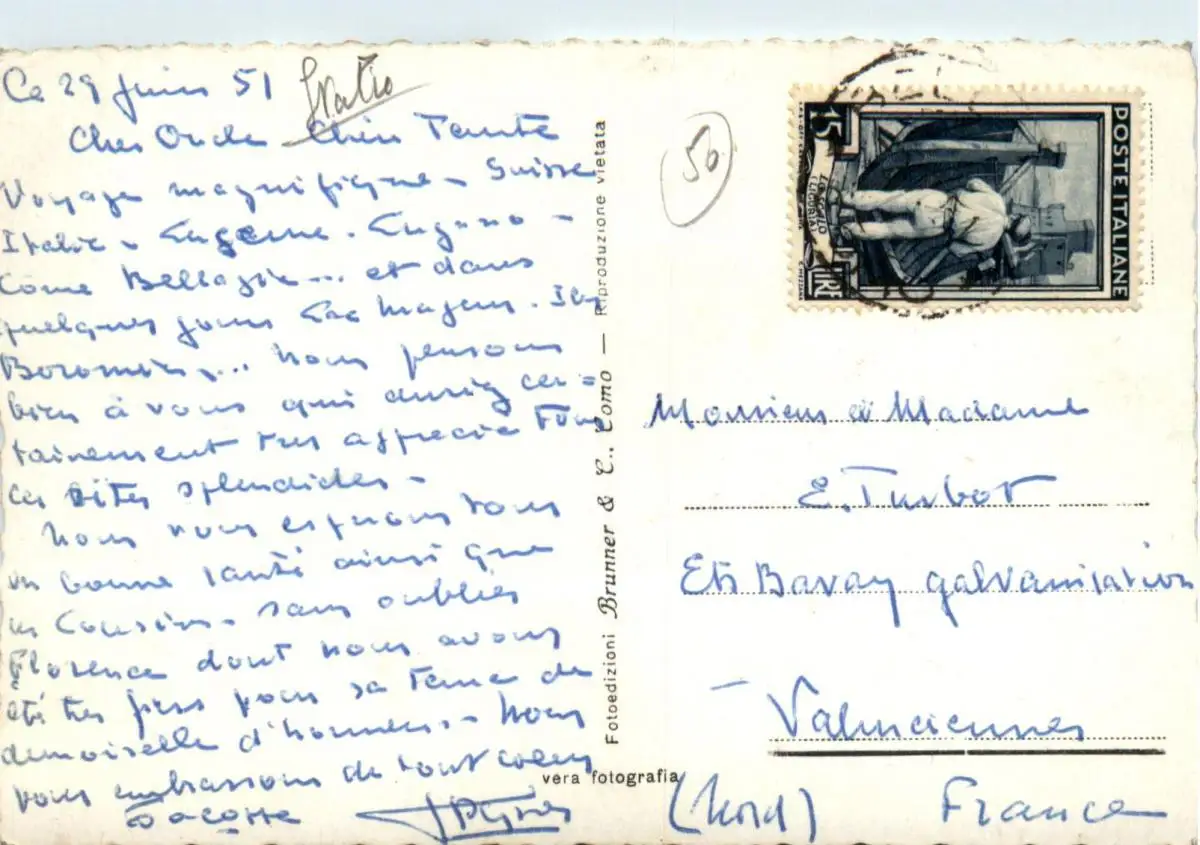 Ce 29 Juin 51
Cher Oncle Chère Tante
Voyage magnifique - Suisse
Italie - Lugano -
Come Bellagio... et dans
quelques jours Lac Majeur. Iles
Boromées... Nous pensons
bien à vous qui auriez cer=
tainement très apprécié tous
ces sites splendides -
Nous vous espérons tous
en bonne santé ainsi que
les Cousins - sans oublier
Florence dont nous avons
été très fiers pour sa tenue de
demoiselle d'honneur - Nous
vous embrassons de tout coeur
50
POSTE ITALIANE
15
LIRE
LO SCALO
(LIGURIA)
Monsieur et Madame
E. Turbot
Ets Bavay galvanisation
Valenciennes
(Nord) France
Fotoedizioni Brunner & C., Como — Riproduzione vietata
vera fotografia